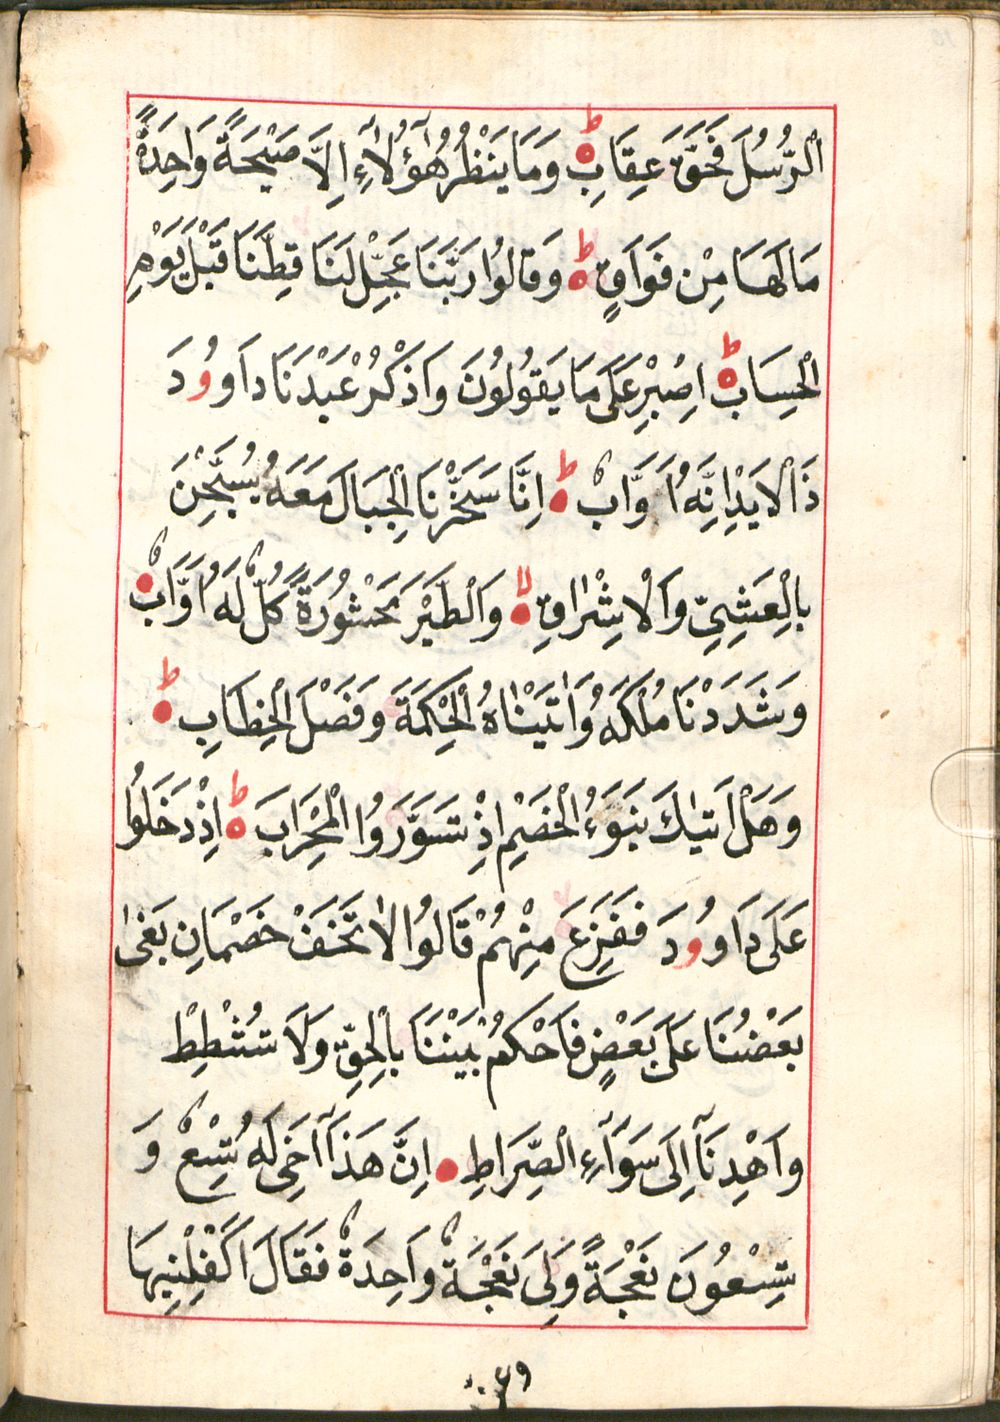 الرُّسُلَ فَحَقَّ عِقَابِ ۝ ط وَمَا يَنْظُرُ هٰٓؤُلَآءِ اِلَّا صَيْحَةً وَاحِدَةً
مَا لَهَا مِنْ فَوَاقٍ ۝ ط وَقَالُوا رَبَّنَا عَجِّلْ لَنَا قِطَّنَا قَبْلَ يَوْمِ
الْحِسَابِ ۝ ط اِصْبِرْ عَلَى مَا يَقُولُونَ وَاذْكُرْ عَبْدَنَا دَاوُودَ
ذَالْاَيْدِ اِنَّهُ اَوَّابٌ ۝ ط اِنَّا سَخَّرْنَا الْجِبَالَ مَعَهُ يُسَبِّحْنَ
بِالْعَشِيِّ وَالْاِشْرَاقِ ۝ لا وَالطَّيْرَ مَحْشُورَةً كُلٌّ لَهُ اَوَّابٌ
وَشَدَدْنَا مُلْكَهُ وَاٰتَيْنَاهُ الْحِكْمَةَ وَفَصْلَ الْخِطَابِ ۝ ط
وَهَلْ اَتٰيكَ نَبَؤُا الْخَصْمِ اِذْ تَسَوَّرُوا الْمِحْرَابَ ۝ ط اِذْ دَخَلُوا
عَلَى دَاوُودَ فَفَزِعَ مِنْهُمْ قَالُوا لَا تَخَفْ خَصْمَانِ بَغٰى
بَعْضُنَا عَلَى بَعْضٍ فَاحْكُمْ بَيْنَنَا بِالْحَقِّ وَلَا تُشْطِطْ
وَاهْدِنَآ اِلَى سَوَآءِ الصِّرَاطِ ۝ اِنَّ هَذَآ اَخِى لَهُ تِسْعٌ وَ
تِسْعُونَ نَعْجَةً وَلِىَ نَعْجَةٌ وَاحِدَةٌ فَقَالَ اَكْفِلْنِيهَا